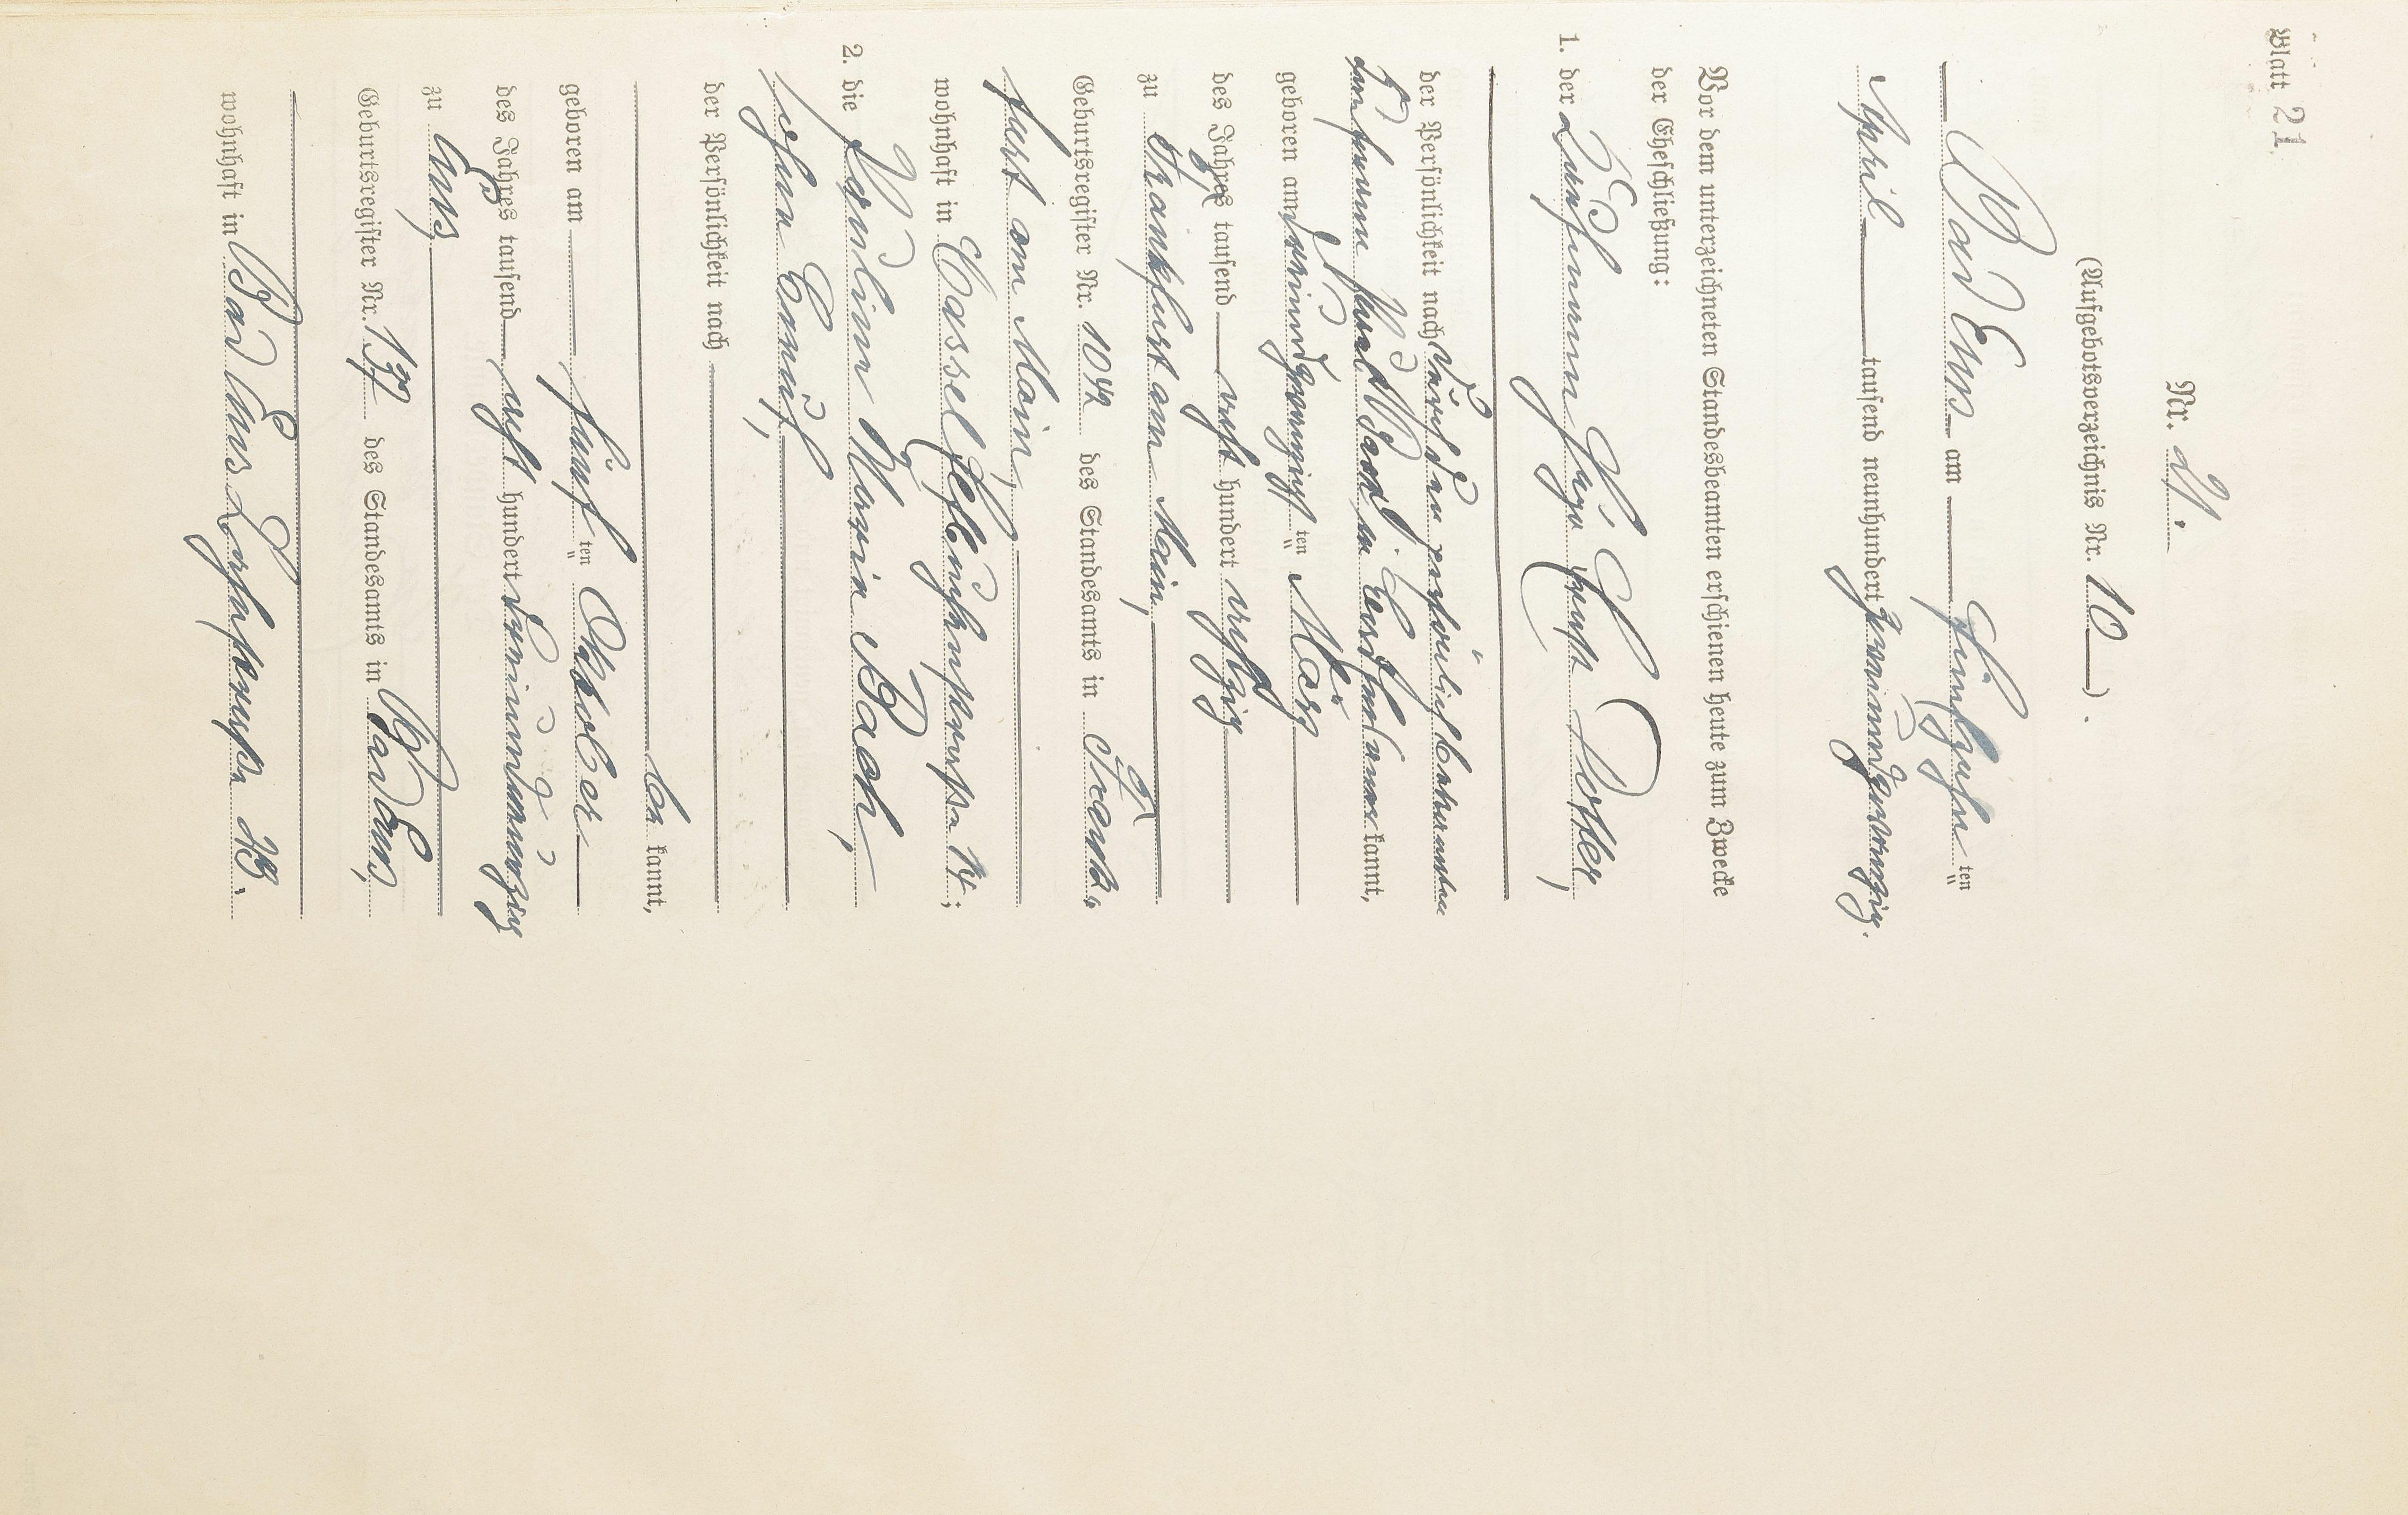 Blatt 21.
Nr. 21.
(Aufgebotsverzeichnis Nr. 10).
Bad Ems am fünfzehn ten
April tausend neunhundert zweiundzwanzig.
Vor dem unterzeichneten Standesbeamten erschienen heute zum Zwecke
der Eheschließung:
1. der Kaufmann Hugo Ernst Potter,
der Persönlichkeit nach durch den persönlich bekannten
be kannt,
geboren am zweiundzwanzigsten März
des Jahres tausend acht hundert achtzig
zu Frankfurt am Main,
Geburtsregister Nr. 1042 des Standesamts in Frank-
furt am Main,
wohnhaft in Cassel 14;
2. die Pauline Maria Bach,
ohne Beruf,
der Persönlichkeit nach
be kannt,
geboren am fünf ten Oktober
des Jahres tausend acht hundert neunundneunzig
zu Ems,
Geburtsregister Nr. 137 des Standesamts in Bad Ems,
wohnhaft in Bad Ems